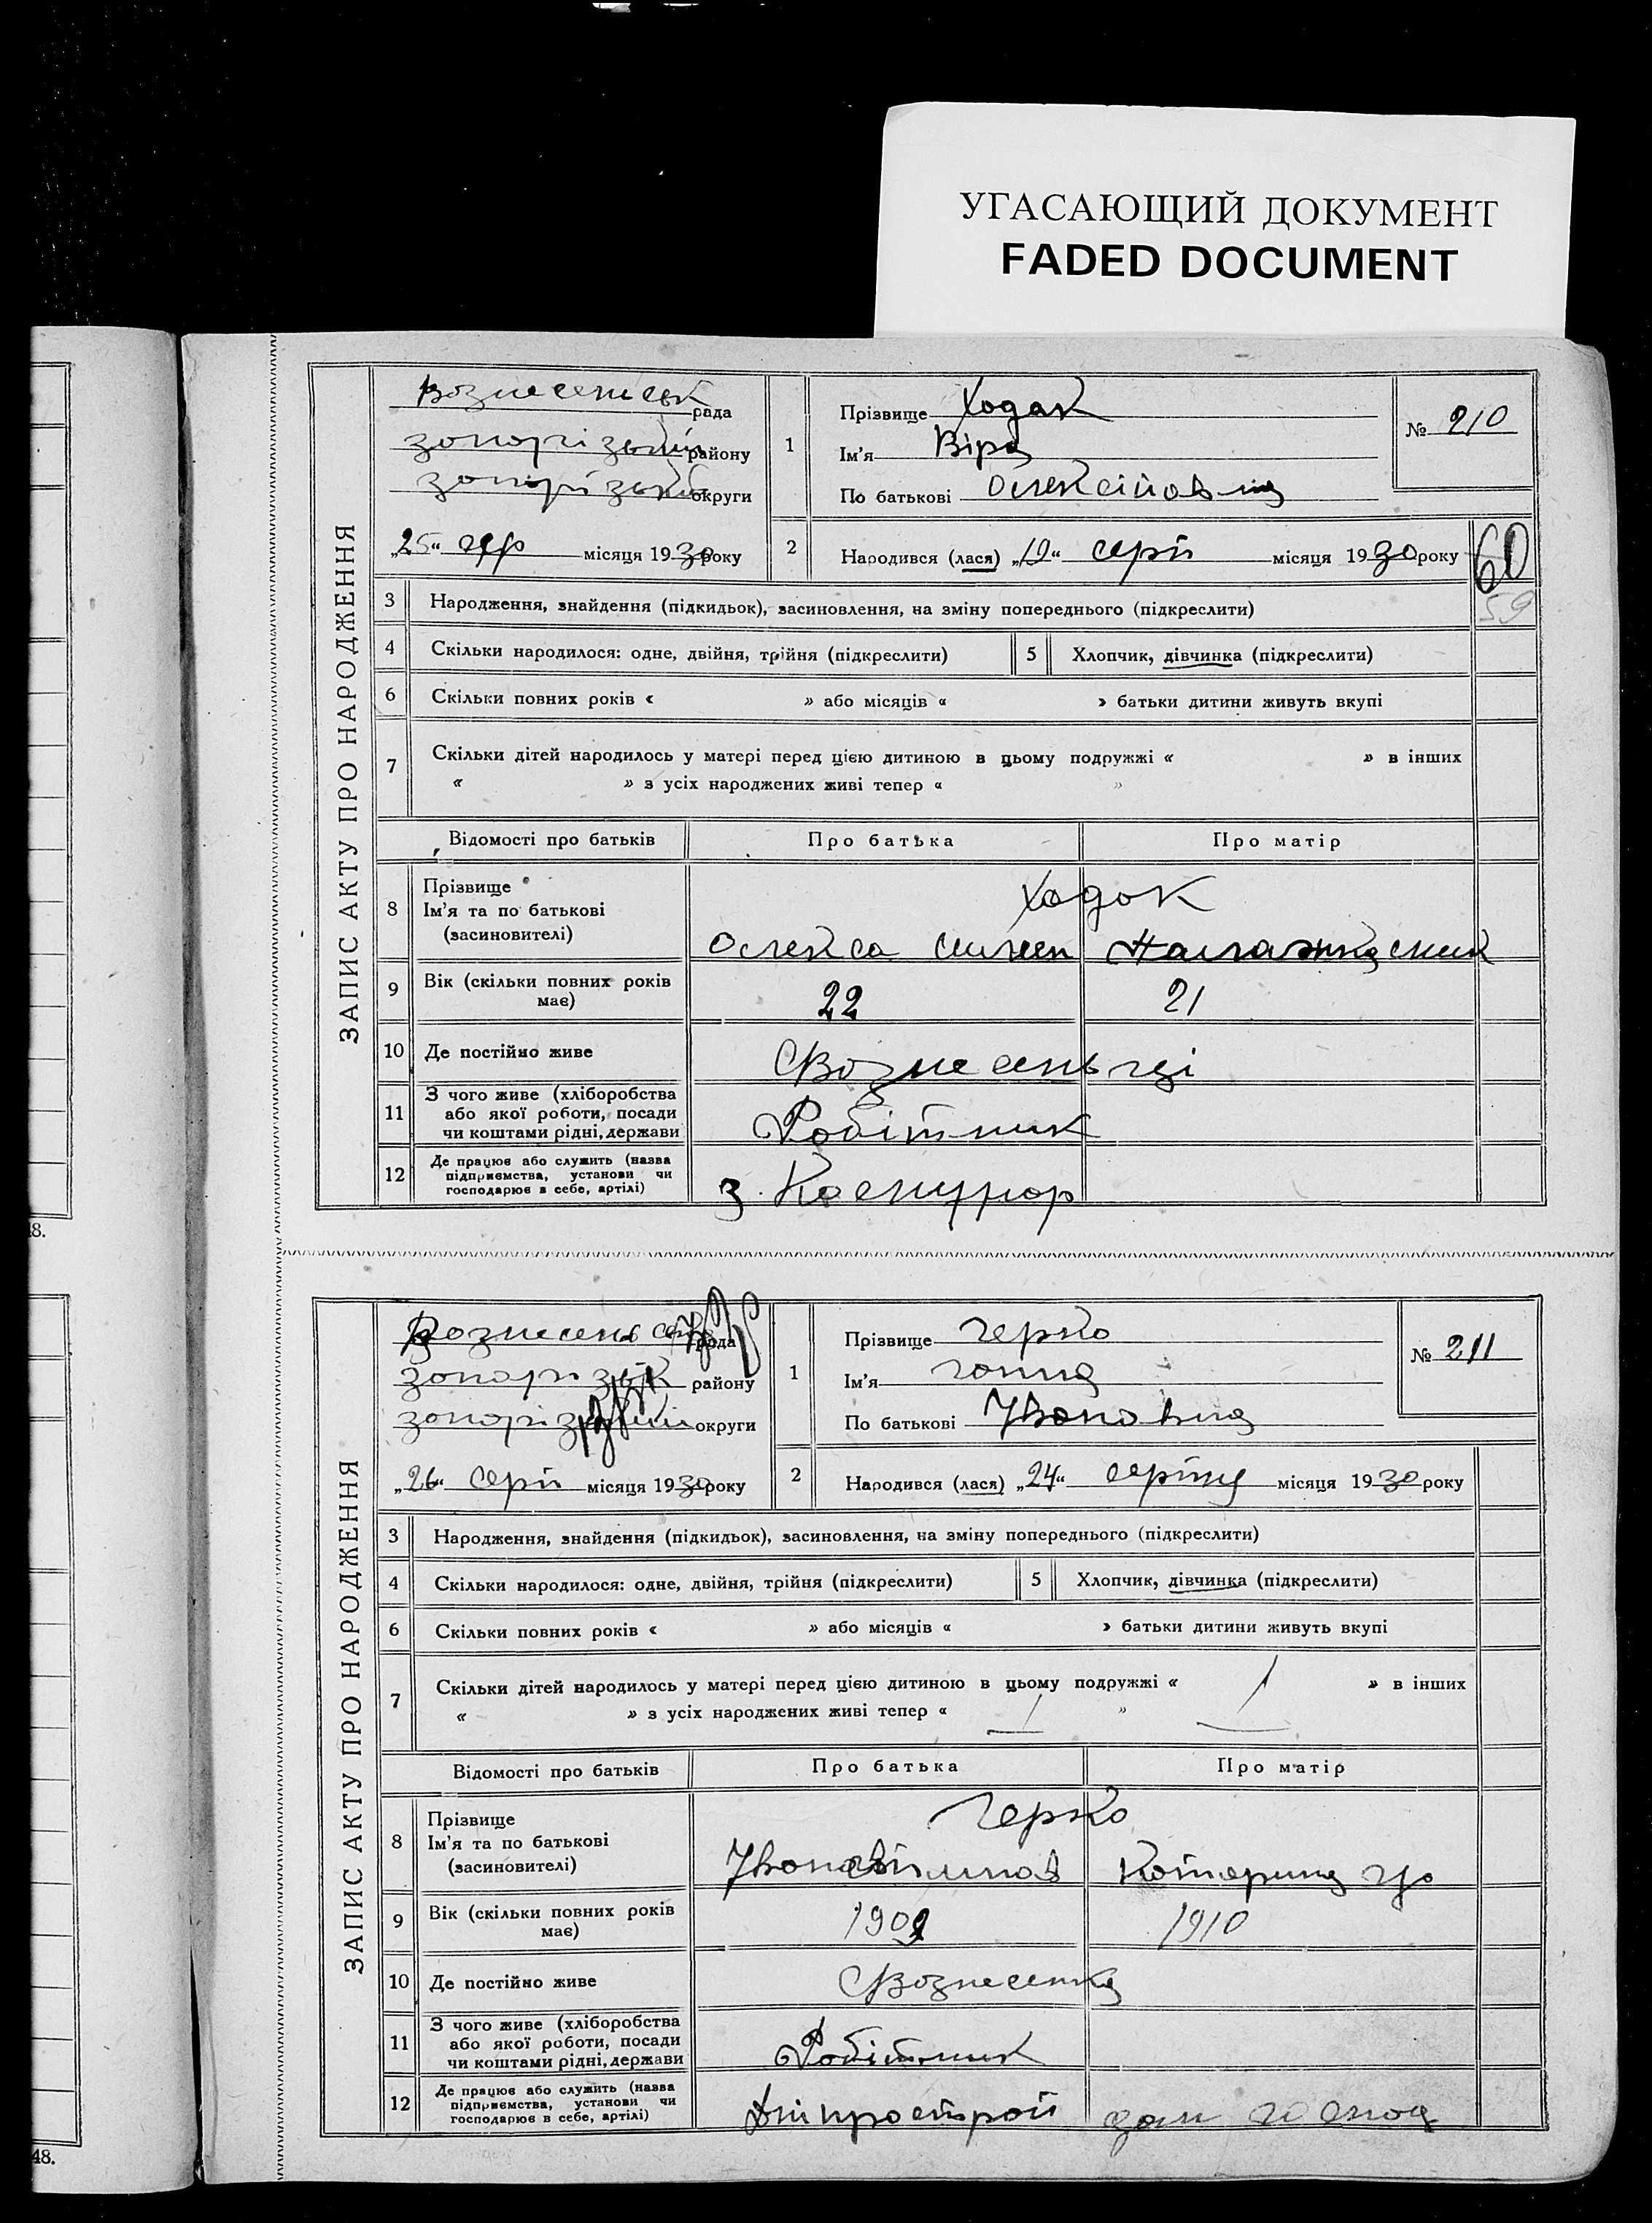 УГАСАЮЩИЙ ДОКУМЕНТ
FADED DOCUMENT
ЗАПИС АКТУ ПРО НАРОДЖЕННЯ
Вознесенськ рада
району
округи
„25“ місяця 1930 року
1
Прізвище Ходак
Ім'я Віра
По батькові Олексіївна
№ 210
2
Народився (лася) „19“ серп місяця 1930 року
60
59
3 Народження, знайдення (підкидьок), засиновлення, на зміну попереднього (підкреслити)
4 Скільки народилося: одне, двійня, трійня (підкреслити)
5 Хлопчик, дівчинка (підкреслити)
6 Скільки повних років « » або місяців « » батьки дитини живуть вкупі
7 Скільки дітей народилось у матері перед цією дитиною в цьому подружжі « » в інших
« » з усіх народжених живі тепер « »
Відомості про батьків Про батька Про матір
8 Прізвище
Ім'я та по батькові
(засиновителі)
Ходак
Олекса
9 Вік (скільки повних років має) 22 21
10 Де постійно живе
11 З чого живе (хліборобства або якої роботи, посади чи коштами рідні, держави Робітник
12 Де працює або служить (назва підприємства, установи чи господарює в себе, артілі) з.
48.
ЗАПИС АКТУ ПРО НАРОДЖЕННЯ
рада
району
округи
„26“ серп місяця 1930 року
1
Прізвище Герко
Ім'я Ганна
По батькові Івановна
№ 211
2
Народився (лася) „24“ серпня місяця 1930 року
3 Народження, знайдення (підкидьок), засиновлення, на зміну попереднього (підкреслити)
4 Скільки народилося: одне, двійня, трійня (підкреслити)
5 Хлопчик, дівчинка (підкреслити)
6 Скільки повних років « » або місяців « » батьки дитини живуть вкупі
7 Скільки дітей народилось у матері перед цією дитиною в цьому подружжі « 1 » в інших
« » з усіх народжених живі тепер « 1 »
Відомості про батьків Про батька Про матір
8 Прізвище
Ім'я та по батькові
(засиновителі)
Герко
Катерина
9 Вік (скільки повних років має) 1909 1910
10 Де постійно живе С Вознесенка
11 З чого живе (хліборобства або якої роботи, посади чи коштами рідні, держави Робітник
12 Де працює або служить (назва підприємства, установи чи господарює в себе, артілі) Дніпрострой
48.